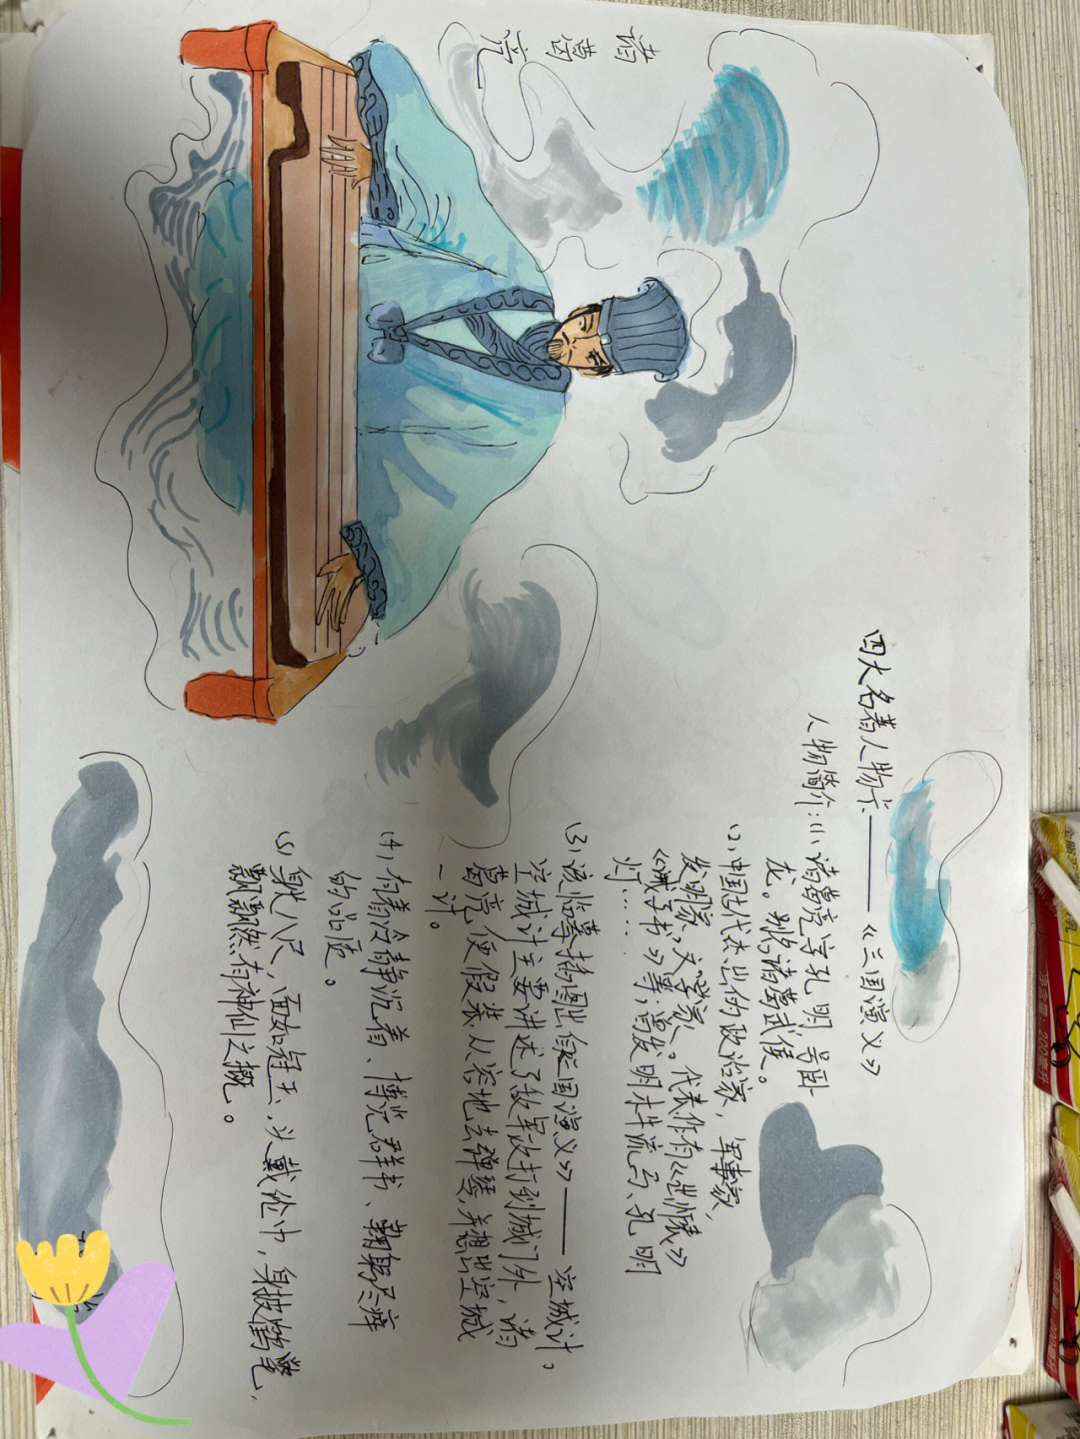 诸葛亮
四大名著人物卡——《三国演义》
人物简介:(1)、诸葛亮字孔明号困
龙。别名诸葛武侯。
(2)、中国古代杰出的政治家,军事家,
发明家,文学家。代表作有《出师表》
《诫子书》等;曾发明木牛流马、孔明
灯……
(3)、该临摹插图出自《三国演义》——空城计。
空城计主要讲述了敌军攻打到城门外,诸
葛亮便假装从容地去弹琴,并想出空城
一计。
(4)、有着冷静沉着、博览群书、鞠躬尽瘁
的品质。
(5)、身长八尺,面如冠玉,头戴纶巾,身披鹤氅,
飘飘然有神仙之概。